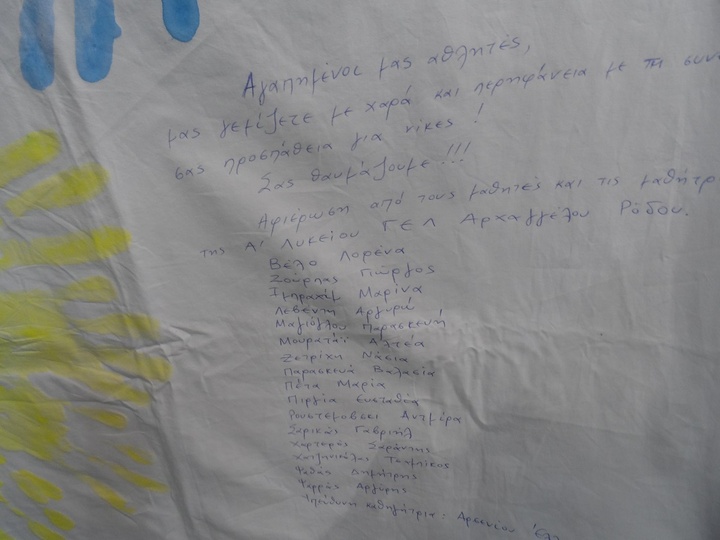 Αγαπημένοι μας αθλητές,
μας γεμίζετε με χαρά και περηφάνεια με τη
σας προσπάθεια για νίκες!
Σας θαυμάζουμε!!!
Αφιέρωση από τους μαθητές και τις
της Α' Λυκείου ΓΕΛ Αρχαγγέλου Ρόδου.
Βέλο Λορένα
Ζούρπας Γιώργος
Ιμπραχίμ Μαρίνα
Λεβέντη Αργυρώ
Μαγιόγλου Παρασκευή
Μουρατάι Αλτέα
Ζετρίχη Νάσια
Παρασκευά Βαλασία
Πότα Μαρία
Πιργία Ευσταθία
Ρουστεμόβσκι Αντμίρα
Σαρικάς Γαβριήλ
Χαρταράς Σαράντης
Τσαμπίκος
Ψαθάς Δημήτρης
Ψαρράς Αργύρης
Υπεύθυνη καθηγήτρια: Αρσενίου